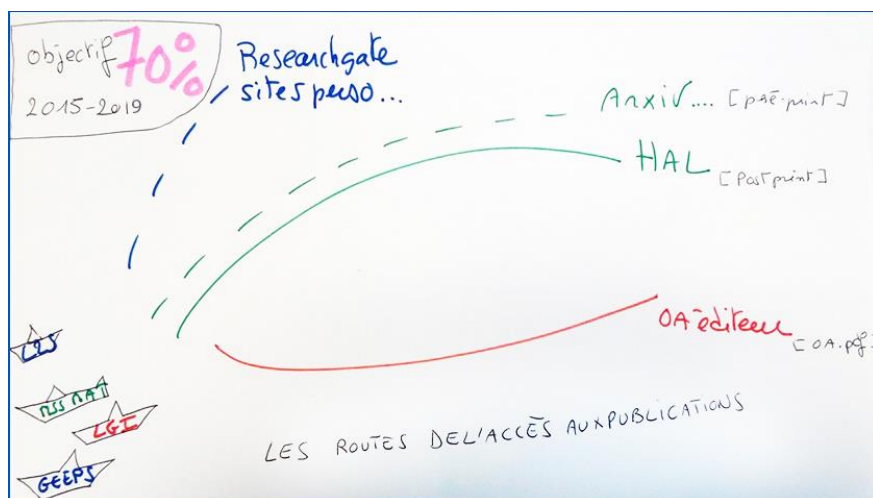 objectif 70%
2015-2019
Researchgate
sites perso...
Arxiv.... [pré-print]
HAL [Postprint]
OA éditeur [OA.pdf]
L2S
MSSMAT
LGI
GEEPS
LES ROUTES DE L'ACCÈS AUX PUBLICATIONS